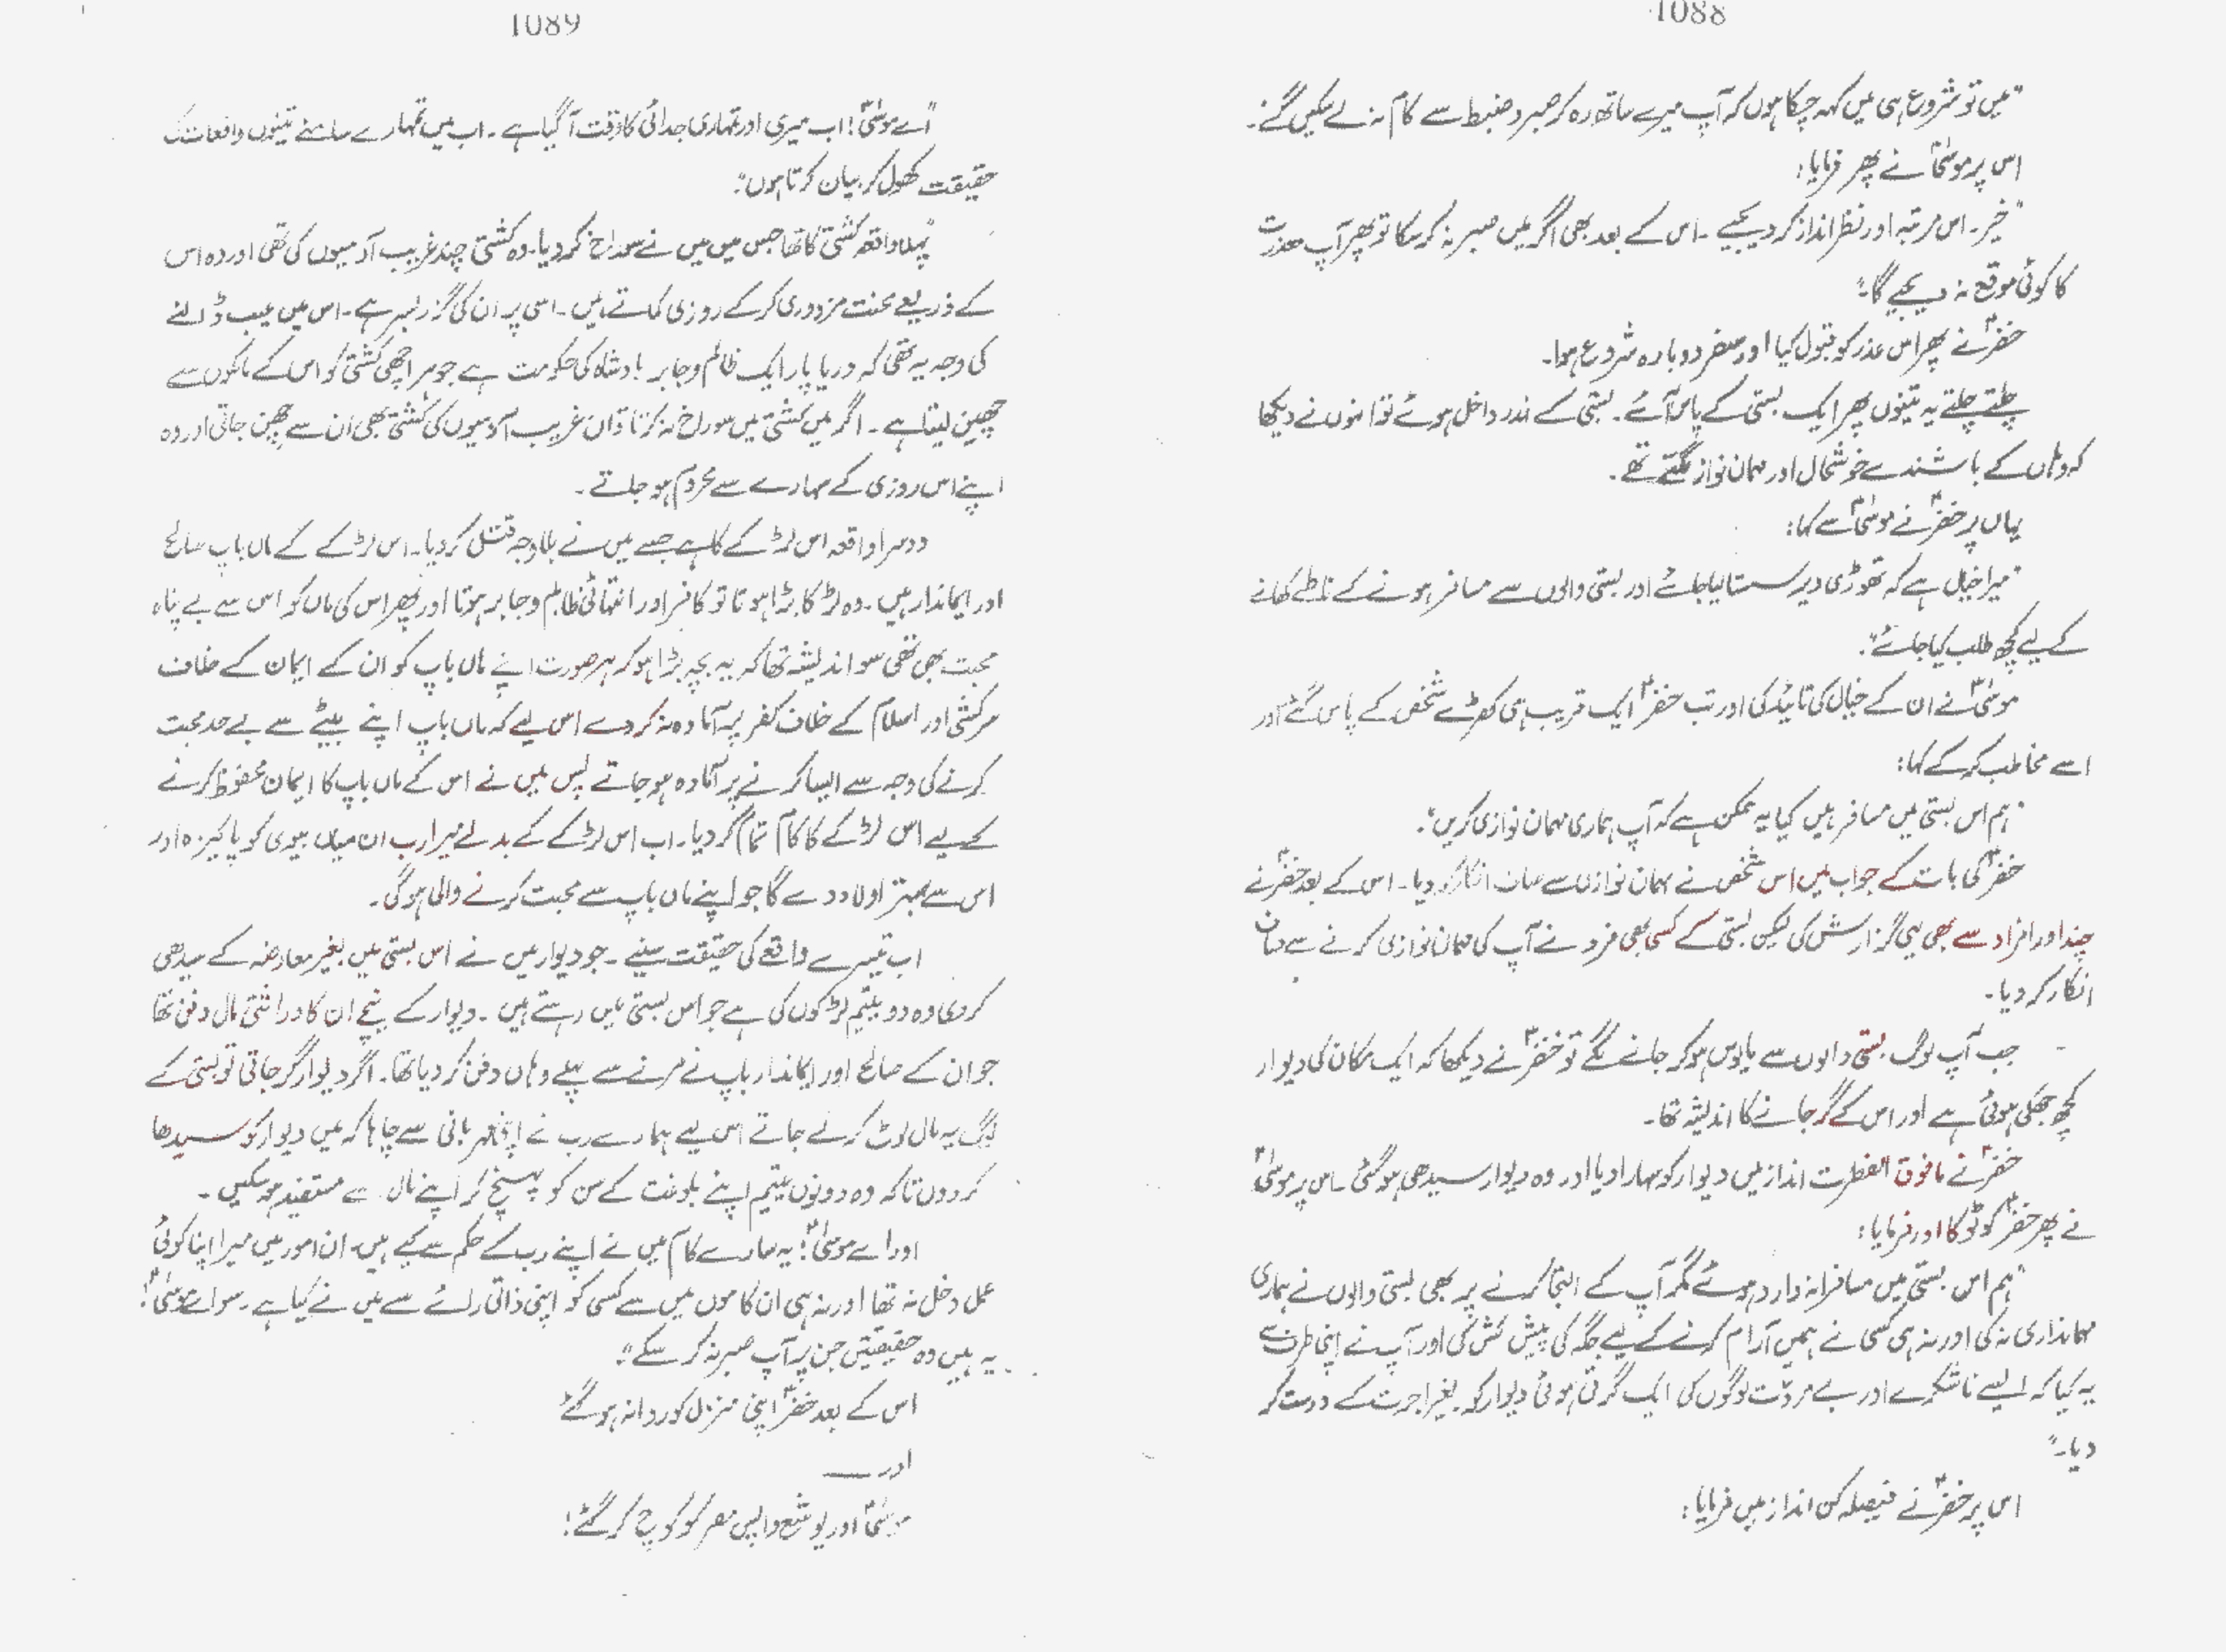 1088
"میں تو شروع ہی میں کہہ چکا ہوں کہ آپ میرے ساتھ رہ کر صبر و ضبط سے کام نہ لے سکیں گے۔
اس پر موسیٰؑ نے پھر فرمایا:
"خیر۔ اس مرتبہ اور نظر انداز کر دیجیے۔ اس کے بعد بھی اگر میں صبر نہ کر سکا تو پھر آپ معذرت
کا کوئی موقع نہ دیجیے گا۔"
خضرؑ نے پھر اس عذر کو قبول کیا اور سفر دوبارہ شروع ہوا۔
چلتے چلتے یہ تینوں پھر ایک بستی کے پاس آئے۔ بستی کے اندر داخل ہوئے تو انہوں نے دیکھا
کہ وہاں کے باشندے خوشحال اور مہمان نواز لگتے تھے۔
یہاں پر خضرؑ نے موسیٰؑ سے کہا:
"میرا خیال ہے کہ تھوڑی دیر سستا لیا جائے اور بستی والوں سے مسافر ہونے کے ناطے کھانے
کے لیے کچھ طلب کیا جائے"۔
موسیٰؑ نے ان کے خیال کی تائید کی اور تب خضرؑ ایک قریب ہی کھڑے شخص کے پاس گئے اور
اسے مخاطب کر کے کہا:
"ہم اس بستی میں مسافر ہیں کیا یہ ممکن ہے کہ آپ ہماری مہمان نوازی کریں"۔
خضرؑ کی بات کے جواب میں اس شخص نے مہمان نوازی سے صاف انکار کر دیا۔ اس کے بعد خضرؑ نے
چند اور افراد سے بھی یہی گزارش کی لیکن بستی کے کسی بھی فرد نے آپ کی مہمان نوازی کرنے سے صاف
انکار کر دیا۔
جب آپ لوگ بستی والوں سے مایوس ہو کر جانے لگے تو خضرؑ نے دیکھا کہ ایک مکان کی دیوار
کچھ جھکی ہوئی ہے اور اس کے گر جانے کا اندیشہ تھا۔
خضرؑ نے مافوق الفطرت انداز میں دیوار کو سہارا دیا اور وہ دیوار سیدھی ہو گئی۔ اس پر موسیٰؑ
نے پھر خضرؑ کو ٹوکا اور فرمایا:
"ہم اس بستی میں مسافرانہ وارد ہوئے مگر آپ کے التجا کرنے پر بھی بستی والوں نے ہماری
مہمانداری نہ کی اور نہ ہی کسی نے ہمیں آرام کرنے کے لیے جگہ کی پیش کش کی اور آپ نے اپنی طرف سے
یہ کیا کہ ایسے ناشکرے اور بے مروّت لوگوں کی ایک گرتی ہوئی دیوار کو بغیر اجرت کے درست کر
دیا۔"
اس پر خضرؑ نے فیصلہ کن انداز میں فرمایا:
1089
"اے موسیٰؑ! اب میری اور تمہاری جدائی کا وقت آ گیا ہے۔ اب میں تمہارے سامنے تینوں واقعات کی
حقیقت کھول کر بیان کرتا ہوں"۔
"پہلا واقعہ کشتی کا تھا جس میں میں نے سوراخ کر دیا۔ وہ کشتی چند غریب آدمیوں کی تھی اور وہ اس
کے ذریعے محنت مزدوری کر کے روزی کماتے ہیں۔ اسی پر ان کی گزر بسر ہے۔ اس میں عیب ڈالنے
کی وجہ یہ تھی کہ دریا پار ایک ظالم و جابر بادشاہ کی حکومت ہے جو ہر اچھی کشتی کو اس کے مالکوں سے
چھین لیتا ہے۔ اگر میں کشتی میں سوراخ نہ کرتا تو ان غریب آدمیوں کی کشتی بھی ان سے چھین جاتی اور وہ
اپنے اس روزی کے سہارے سے محروم ہو جاتے۔
دوسرا واقعہ اس لڑکے کا ہے جسے میں نے بلاوجہ قتل کر دیا۔ اس لڑکے کے ماں باپ صالح
اور ایماندار ہیں۔ وہ لڑکا بڑا ہوتا تو کافر اور انتہائی ظالم و جابر ہوتا اور پھر اس کی ماں کو اس سے بے پناہ
محبت بھی تھی سو اندیشہ تھا کہ یہ بچہ بڑا ہو کر ہر صورت اپنے ماں باپ کو ان کے ایمان کے خلاف
سرکشی اور اسلام کے خلاف کفر پر آمادہ نہ کر دے اس لیے کہ ماں باپ اپنے بیٹے سے بے حد محبت
کرنے کی وجہ سے ایسا کرنے پر آمادہ ہو جاتے پس میں نے اس کے ماں باپ کا ایمان محفوظ کرنے
کے لیے اس لڑکے کا کام تمام کر دیا۔ اب اس لڑکے کے بدلے میرا رب ان میاں بیوی کو پاکیزہ اور
اس سے بہتر اولاد دے گا جو اپنے ماں باپ سے محبت کرنے والی ہو گی۔
اب تیسرے واقعے کی حقیقت سنیے۔ جو دیوار میں نے اس بستی میں بغیر معاوضہ کے سیدھی
کر دی وہ دو یتیم لڑکوں کی ہے جو اس بستی میں رہتے ہیں۔ دیوار کے نیچے ان کا وراثتی مال دفن تھا
جو ان کے صالح اور ایماندار باپ نے مرنے سے پہلے وہاں دفن کر دیا تھا۔ اگر دیوار گر جاتی تو بستی کے
لوگ یہ مال لوٹ کر لے جاتے اس لیے ہمارے رب نے اپنی مہربانی سے چاہا کہ میں دیوار کو سیدھا
کر دوں تاکہ وہ دونوں یتیم اپنے بلوغت کے سن کو پہنچ کر اپنے مال سے مستفید ہو سکیں۔
اور اے موسیٰؑ! یہ سارے کام میں نے اپنے رب کے حکم سے کیے ہیں۔ ان امور میں میرا اپنا کوئی
عمل دخل نہ تھا اور نہ ہی ان کاموں میں سے کسی کو اپنی ذاتی رائے سے میں نے کیا ہے۔ سو اے موسیٰؑ!
یہ ہیں وہ حقیقتیں جن پر آپ صبر نہ کر سکے"۔
اس کے بعد خضرؑ اپنی منزل کو روانہ ہو گئے
اور ——
موسیٰؑ اور یوشع واپس مصر کو کوچ کر گئے!